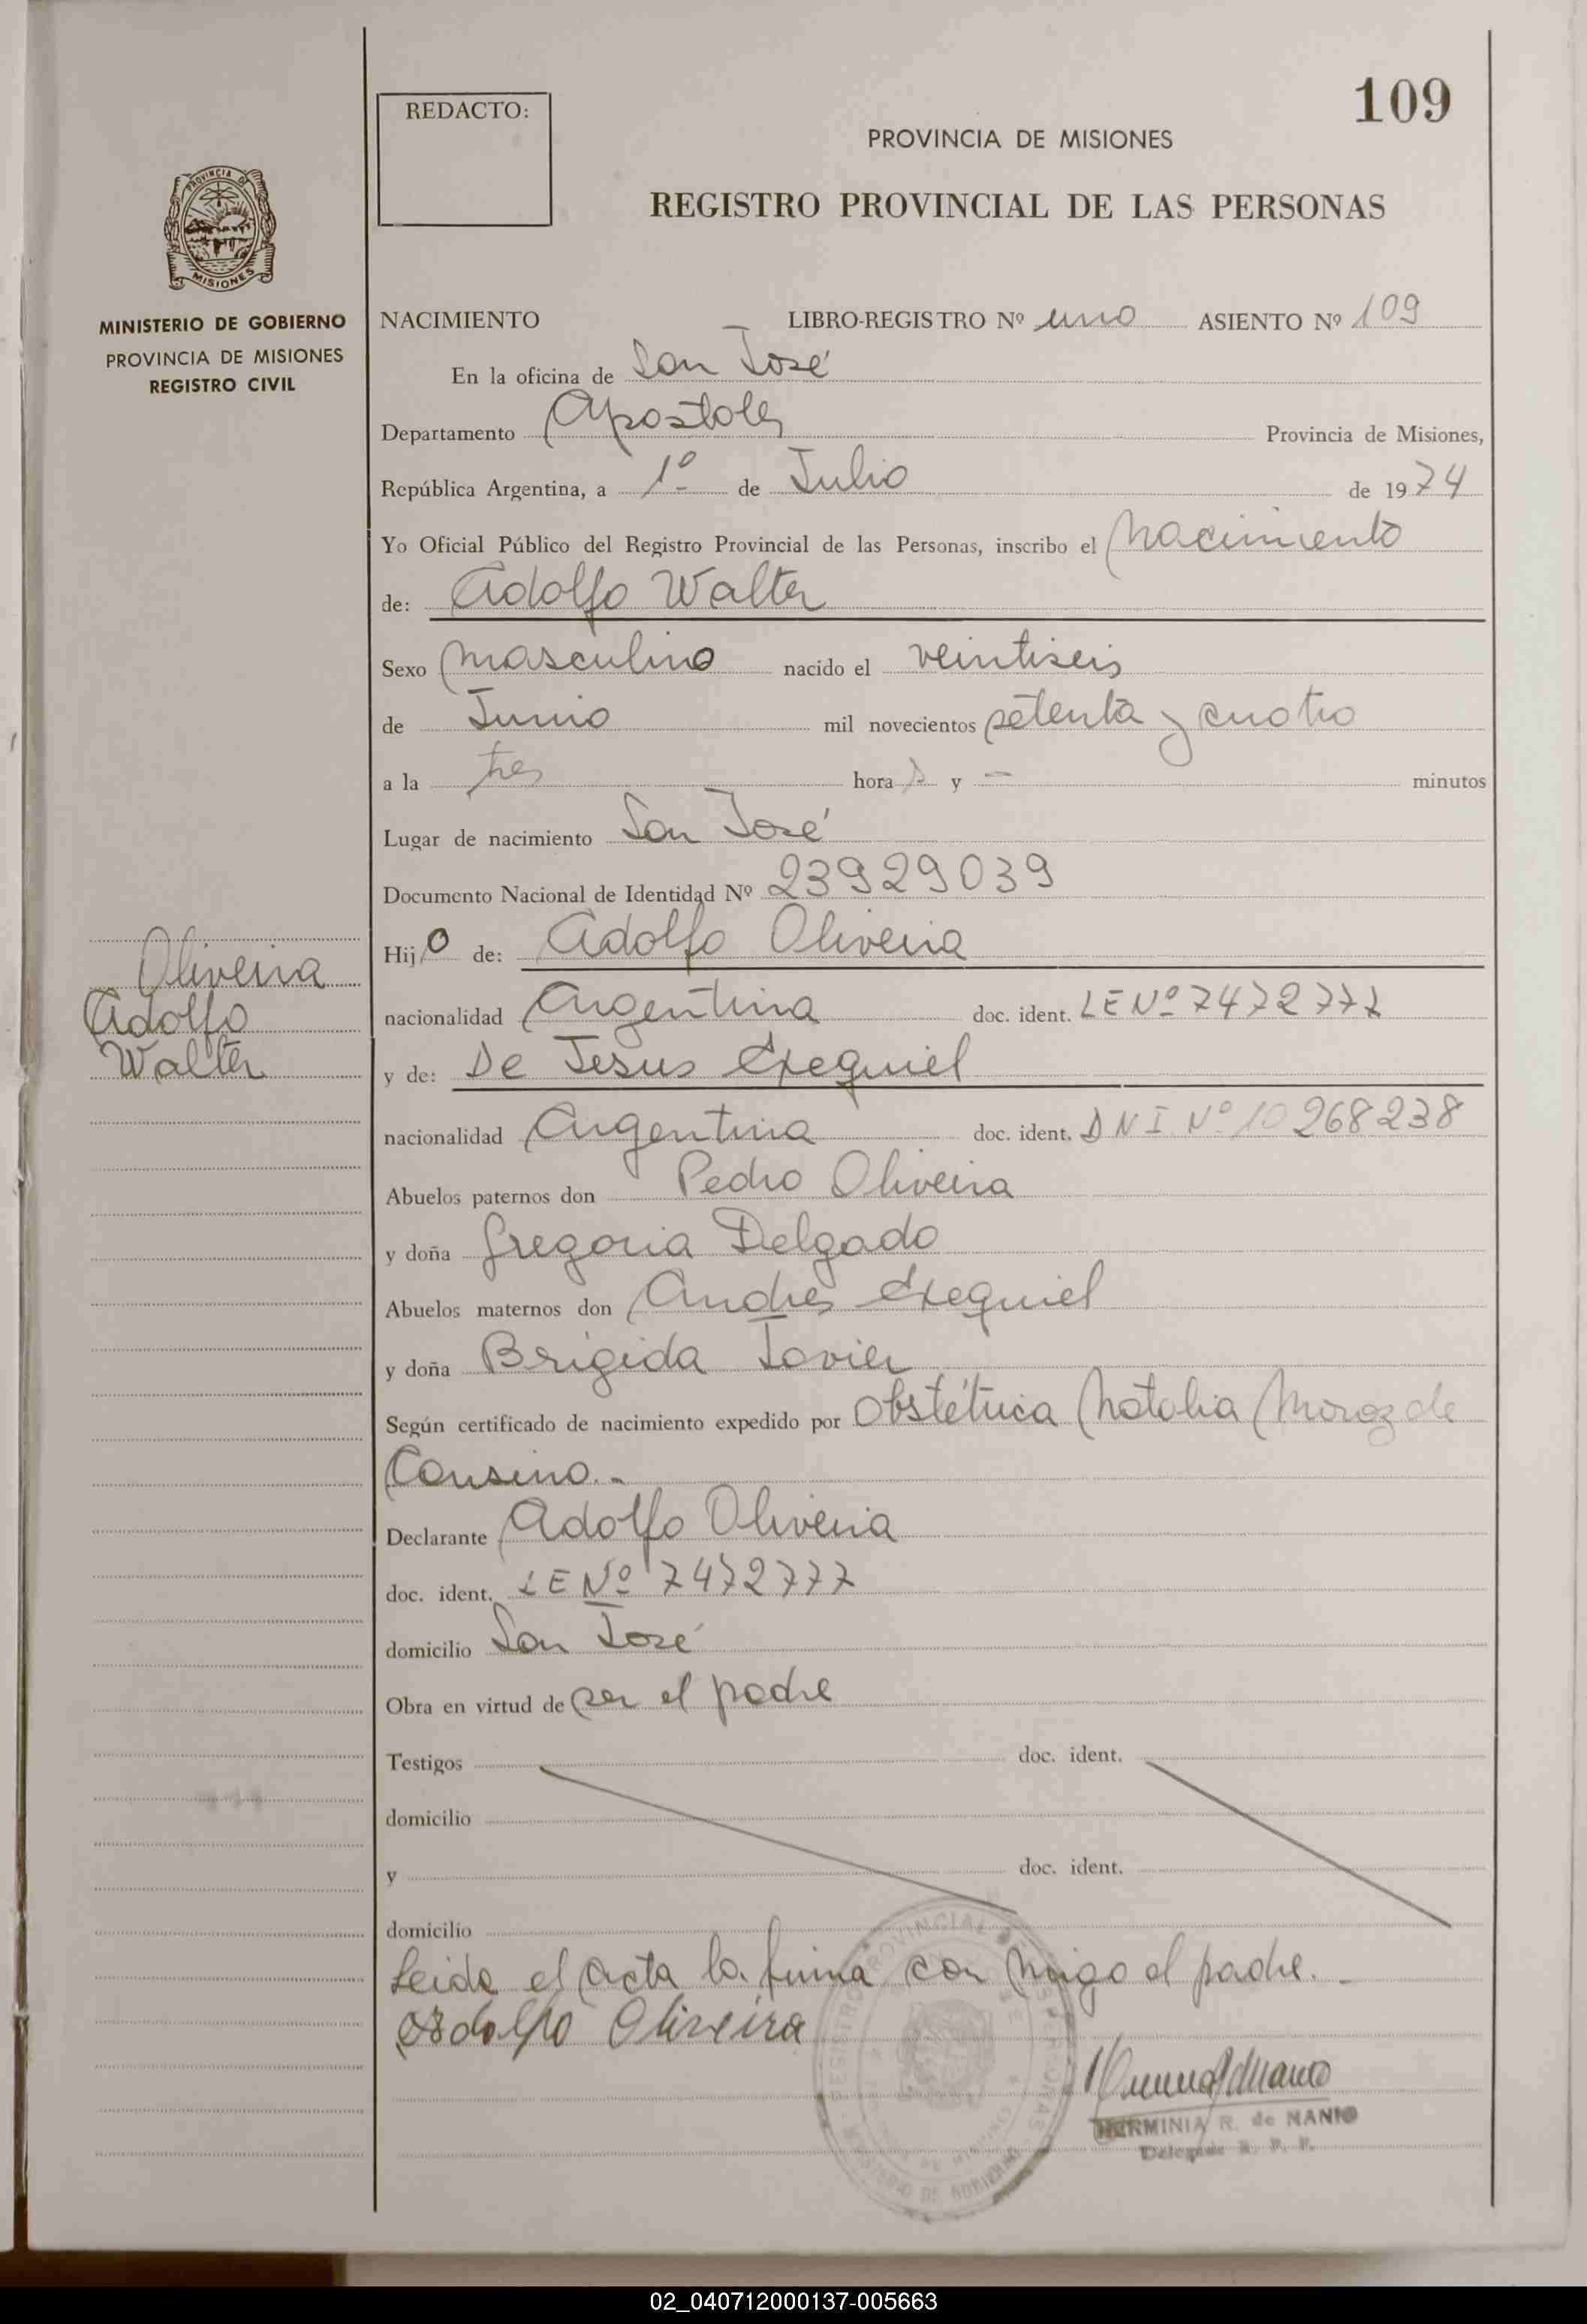 109
REDACTO:
PROVINCIA DE MISIONES
REGISTRO PROVINCIAL DE LAS PERSONAS
PROVINCIA DE
MISIONES
MINISTERIO DE GOBIERNO
PROVINCIA DE MISIONES
REGISTRO CIVIL
NACIMIENTO LIBRO-REGISTRO Nº uno ASIENTO Nº 109
En la oficina de San José
Departamento Apostoles Provincia de Misiones,
República Argentina, a 1º de Julio de 1974
Yo Oficial Público del Registro Provincial de las Personas, inscribo el Nacimiento
de: Adolfo Walter
Sexo Masculino nacido el veintiseis
de Junio mil novecientos setenta y cuatro
a la tres hora s y - minutos
Lugar de nacimiento San José
Documento Nacional de Identidad Nº 23929039
Hijo de: Adolfo Oliveira
Oliveira
Adolfo
Walter
nacionalidad Argentina doc. ident. LE Nº 7472777
y de: De Jesus Exequiel
nacionalidad Argentina doc. ident. DNI. Nº 10268238
Abuelos paternos don Pedro Oliveira
y doña Gregoria Delgado
Abuelos maternos don Andres Exequiel
y doña Brigida
Según certificado de nacimiento expedido por Obstétrica Natalia Moroz de
Declarante Adolfo Oliveira
doc. ident. LE Nº 7472777
domicilio San José
Obra en virtud de ser el padre
Testigos doc. ident.
domicilio
y doc. ident.
domicilio
Leida el acta la firma con migo el padre.-
Adolfo Oliveira
HERMINIA R. de NANIO
Delegada R. P. P.
02_040712000137-005663